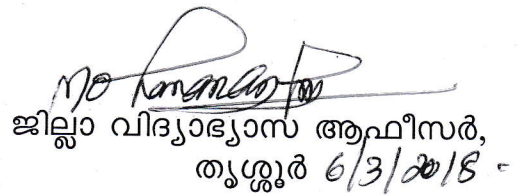 ജില്ലാ വിദ്യാഭ്യാസ ആഫീസർ,
തൃശ്ശൂർ 6/3/2018